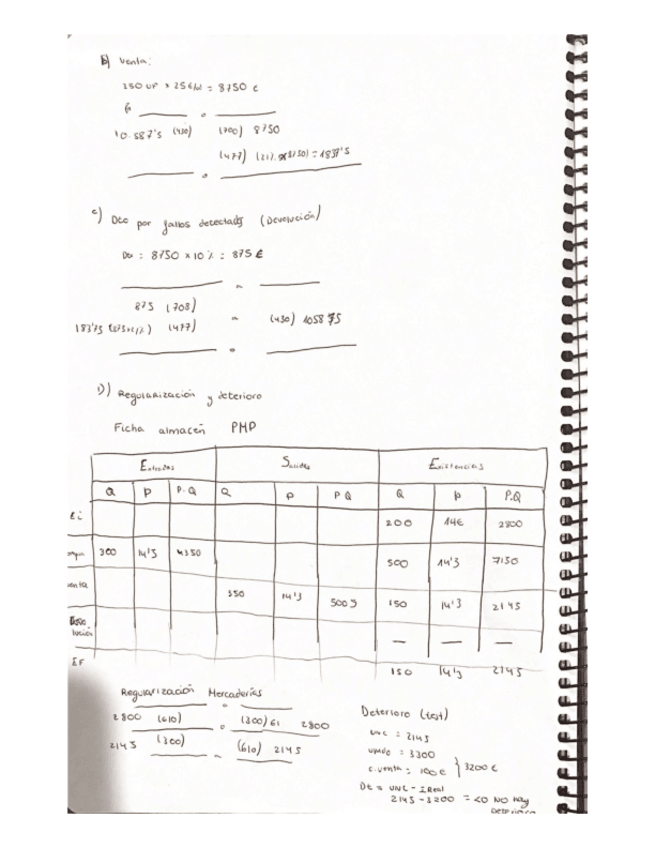 b) Venta:
350 uf × 25€/u = 8750 €
10.587'5 (430) (700) 8750
(477) (21% × 8750) = 1837'5
c) Dto por fallos detectados (Devolución)
Dto = 8750 × 10% = 875 €
875 (708)
183'75 (477) (430) 1058'75
D) Regularización y deterioro
Ficha almacen PMP
Entradas Salidas Existencias
Q P P.Q Q P PQ Q P P.Q
Ei 200 14€ 2800
ompra 300 14'5 4350 500 14'3 7150
enta 350 14'3 5005 150 14'3 2145
Devo
lución — — —
EF 150 14'3 2145
Regularización Mercaderías
2800 (610) (300) 61 2800
2145 (300) (610) 2145
Deterioro (test)
VNC = 2145
Vmdo = 3300
c. venta = 100€ } 3200€
Dt = VNC - I Real
2145 - 3200 = <0 NO hay
Deterioro